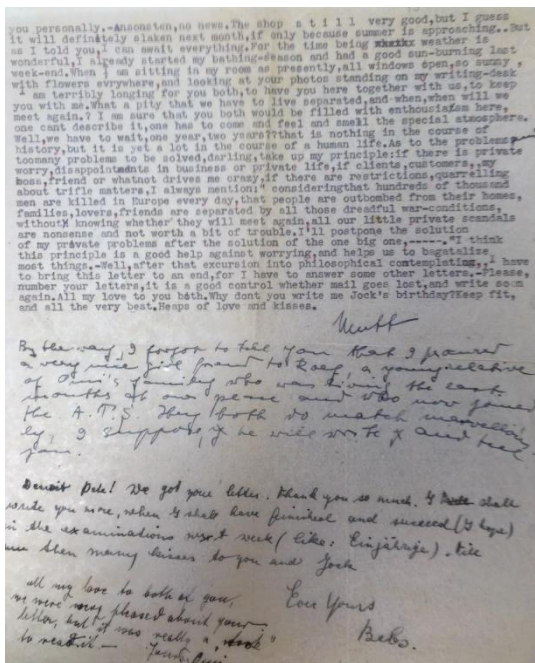 you personally.-Ansonsten,no news.The shop s t i l l very good,but I guess
it will definately slaken next month,if only because summer is approaching..But
as I told you,I can await everything.For the time being weather is
wonderful,I already started my bathing-season and had a good sun-burning last
week-end.When I am sitting in my room as presently,all windows open,so sunny,
with flowers evrywhere,and looking at your photos standing on my writing-desk
I am terribly longing for you both,to have you here together with us,to keep
you with me.What a pity that we have to live separated,and when,when will we
meet again.? I am sure that you both would be filled with enthousiazm here,
one cant describe it,one has to come and feel and smell the special atmosphere.
Well,we have to wait,one year,two years??that is nothing in the course of
history,but it is yet a lot in the course of a human life.As to the problems
toomany problems to be solved,darling,take up my principle:if there is private
worry,disappointments in business or private life,if clients,customers,,my
boss,friend or whatnot drives me crasy,if there are restrictions,quarrelling
about trifle matters,I always mention:" consideringthat hundreds of thousand
men are killed in Europe every day,that people are outbombed from their homes,
families,lovers,friends are separated by all those dreadful war-conditions,
without knowing whether they will meet again,all our little private scandals
are nonsense and not worth a bit of trouble.I'll postpone the solution
of my private problems after the solution of the one big one,-----."I think
this principle is a good help against worrying,and helps us to bagatalise
most things.-Well,after that excursion into philosophical contemplating,,I have
to bring this letter to an end,for I have to answer some other letters.-Please,
number your letters,it is a good control whether mail goes lost,and write soon
again.All my love to you bath.Why dont you write me Jock's birthday?Keep fit,
and all the very best.Heaps of love and kisses.
Mutt
By the way, I forgot to tell you that I procured
a very nice girl friend to Ralf, a young relative
of Omi's family who was living the last
months at our place and who now joined
the A.T.S. They both do match marvellous-
ly, I suppose, if he will write and tell
you.
Pete! We got your letter. Thank you so much. I shall
write you more, when I shall have finished and succeed (I hope)
in the examinations next week (like: Einjährige). Till
then many kisses to you and Jock
Ever Yours
Bebs.
All my love to both of you,
we were very pleased about your
letter, but it was really a "work"
to read it -